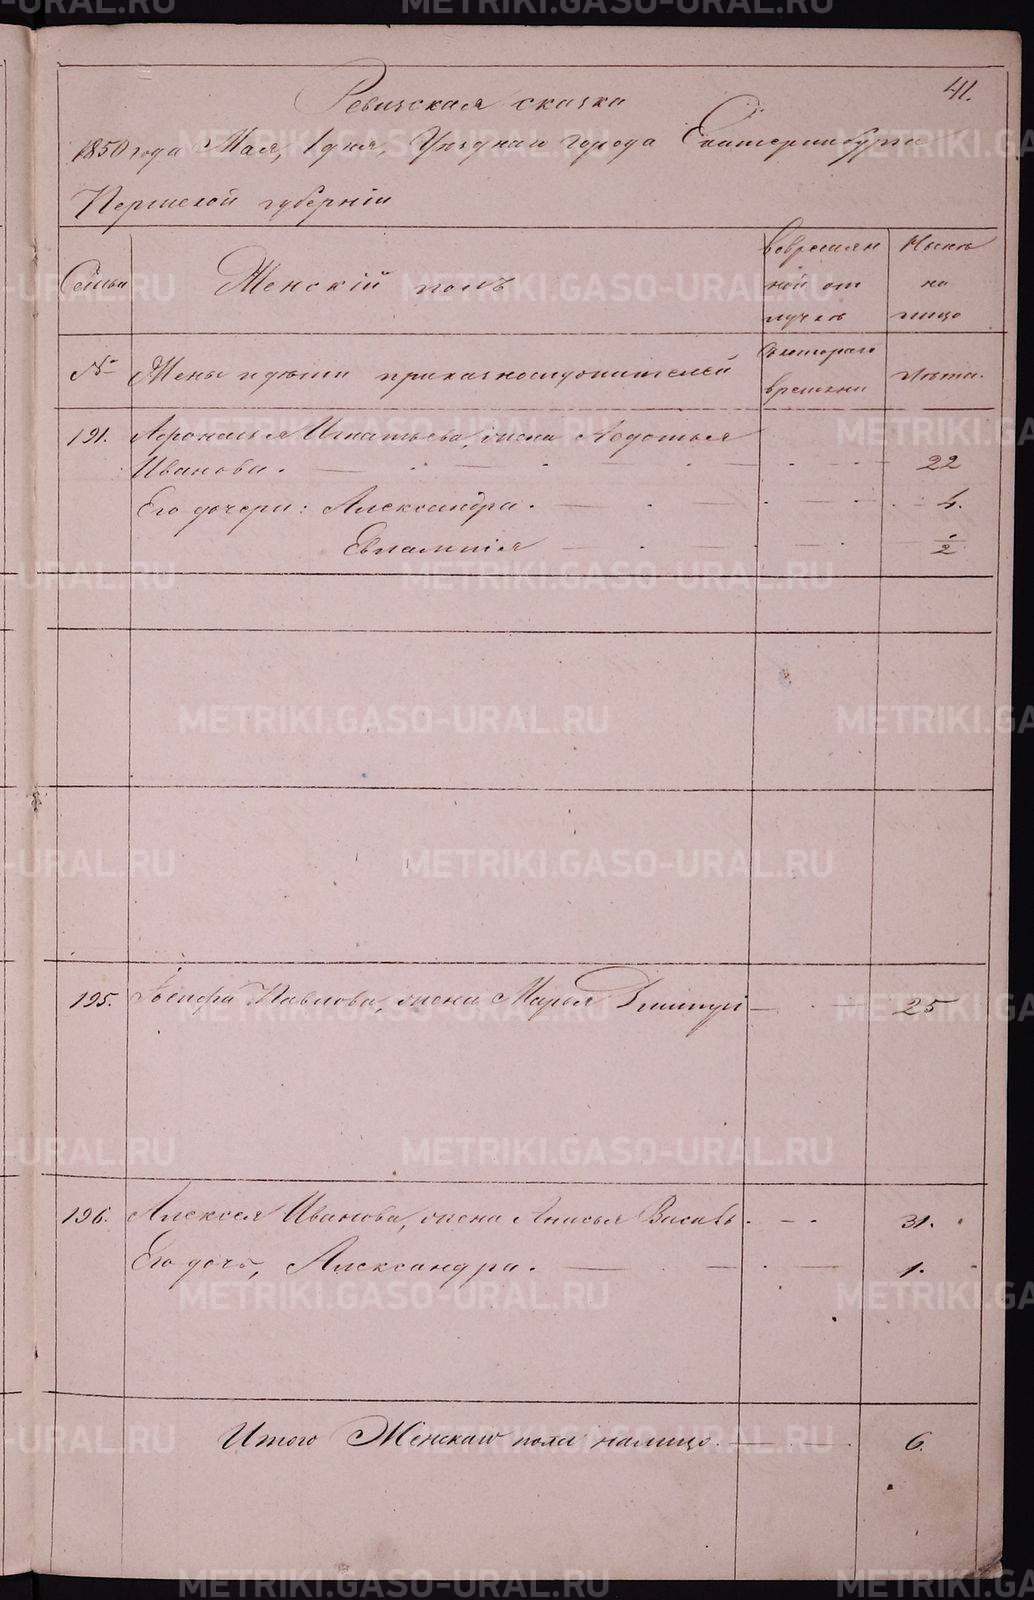 41.
Ревизская сказка
1850 года Мая, 1 дня, Уезднаго города Екатеринбурга
Пермской губернiи
Семьи
Женскiй полъ
вовремян
ной от
лучкѣ
Нынѣ
на
лицо
№
Жены и дѣти приказнослужителей
Съ котораго
времени
Лѣта.
191. Афонасья Игнатьева, жена Авдотья
Иванова. 22
Его дочери: Александра. 4.
Евлампiя 1/2
195. Iосифа Павлова, жена Марья Дмитрi 25
196. Алексея Иванова, жена Анисья Василь. 31.
Его дочь, Александра. 1.
Итого Женскаго пола налицо. 6.
METRIKI.GASO-URAL.RU